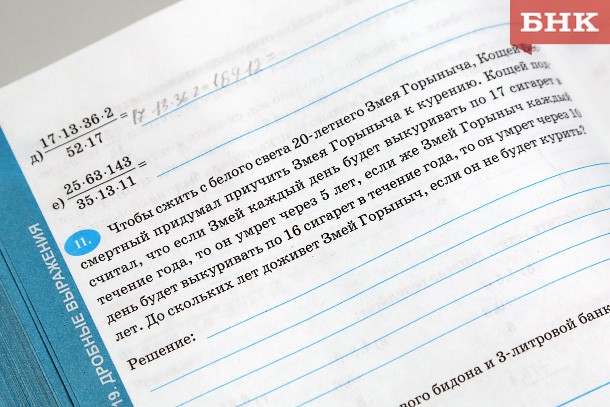 БНК
д) 17·13·36·2 / 52·17 = 17·13·36·2=(69·12=
е) 25·63·143 / 35·13·11 =
11. Чтобы сжить с белого света 20-летнего Змея Горыныча, Кощей Бес-
смертный придумал приучить Змея Горыныча к курению. Кощей под-
считал, что если Змей каждый день будет выкуривать по 17 сигарет в
течение года, то он умрет через 5 лет, если же Змей Горыныч каждый
день будет выкуривать по 16 сигарет в течение года, то он умрет через 10
лет. До скольких лет доживет Змей Горыныч, если он не будет курить?
Решение:
19. ДРОБНЫЕ ВЫРАЖЕНИЯ
бидона и 3-литровой